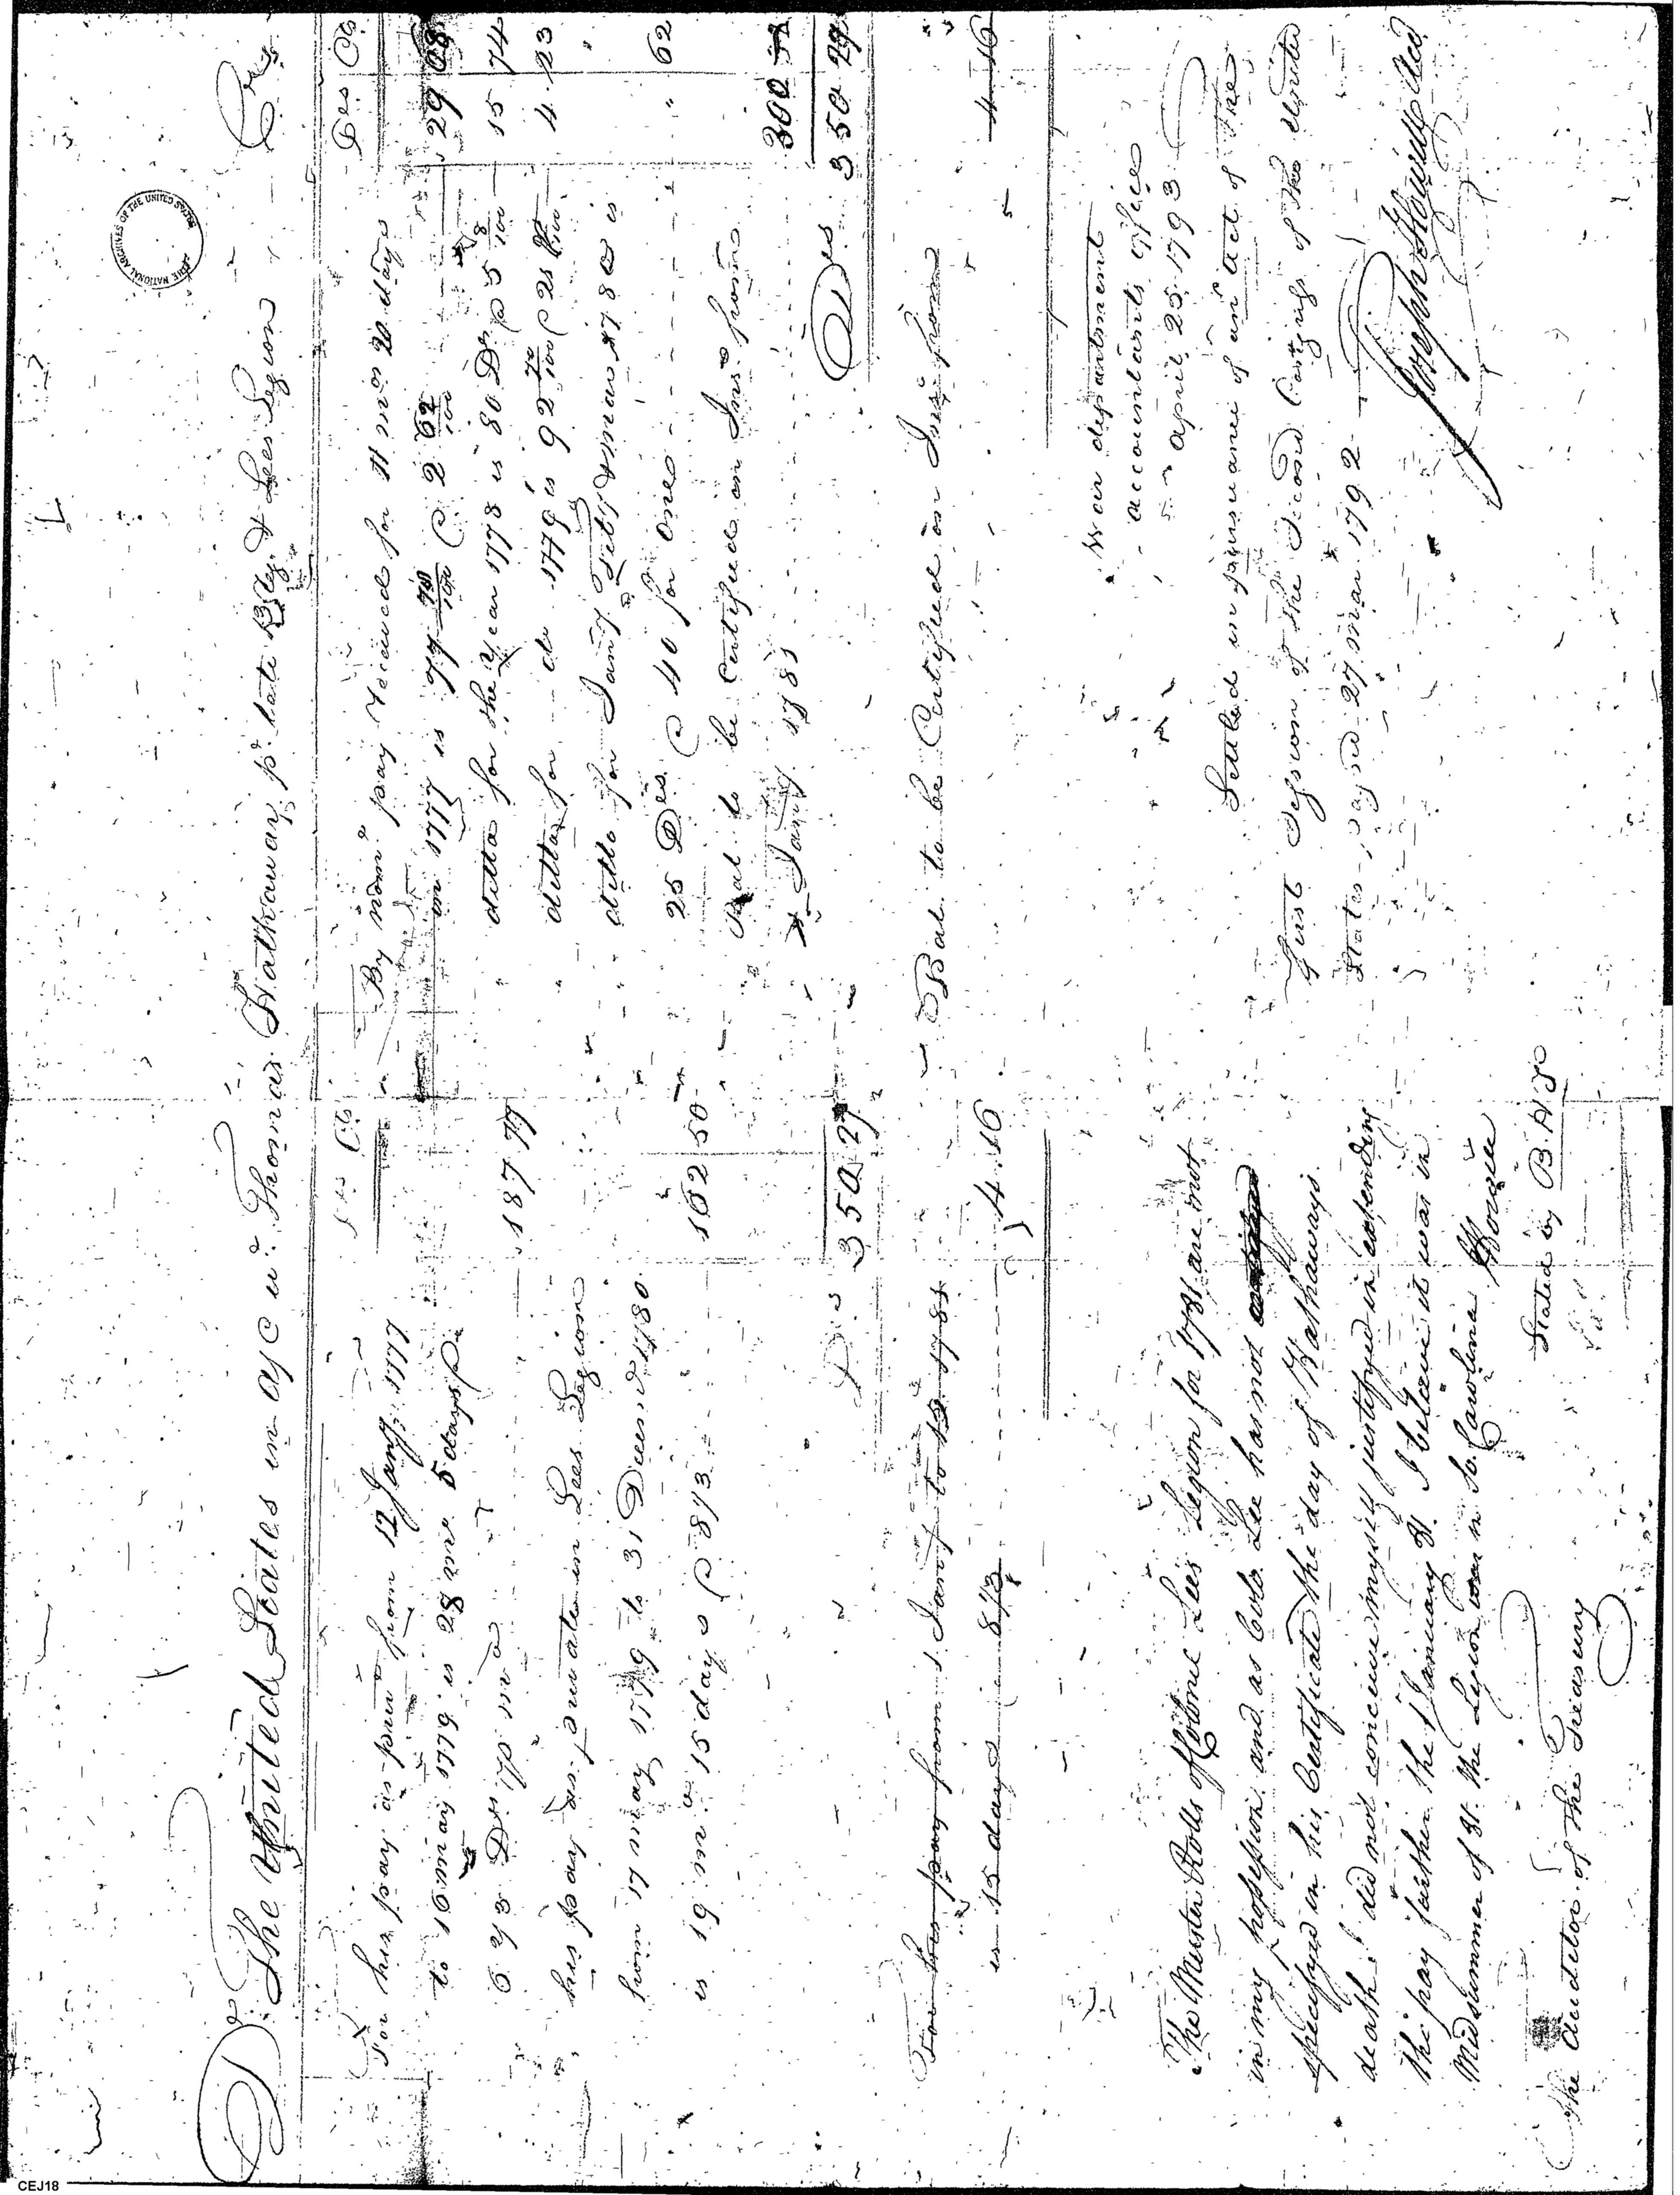 Dr The United States in a/c wth Thomas Hathaway pr late 13 Regt & Lees Legion Cr
Ds Cts
For his pay as privt from 12 Jany 1777
to 16 may 1779 is 28 mos 5 days @
6 2/3 Drs pr mo
187 77
his pay as private in Lees Legion
from 17 may 1779 to 31 Decemr 1780
is 19 mos 15 days @ 8 1/3
162 50
Ds 350 27
For his pay from 1 Jany to 15 1781
is 15 days @ 8 1/3 4 16
The Muster Rolls of Colonel Lees Legion for 1781 are not
in my possession, and as Colo. Lee has not
specifyed in his Certificate the day of Hathaways
death, I did not conceive myself justifyed in extending
the pay further than the 1 January 81. I believe it was in
Midsummer of 81. the Legion was in So. Carolina Howell
Stated by B. H
The Auditor of the Treasury
Des Cts
By noml pay received for 11 mos 20 days
in 1777 is 77 78/100 @ 2 62/100 29 68
" ditto for the year 1778 is 80 Drs @ 5 8/100 15 74
" ditto for do 1779 is 92 @ 21 4 23
" ditto for Jany Feby & mar 1780 is "
25 Des @ 40 for one " 62
Bal to be Certified on Int from
1 Jany 1781 300
Des 350 27
Bal to be Certified on Int from
4 16
War department
accountants office
april 25 1793
Settled in pursuance of an act of the
first Session of the Second Congress of the United
States, passed 27 mar 1792
Joseph Howell Acct
THE NATIONAL ARCHIVES OF THE UNITED STATES
CEJ18